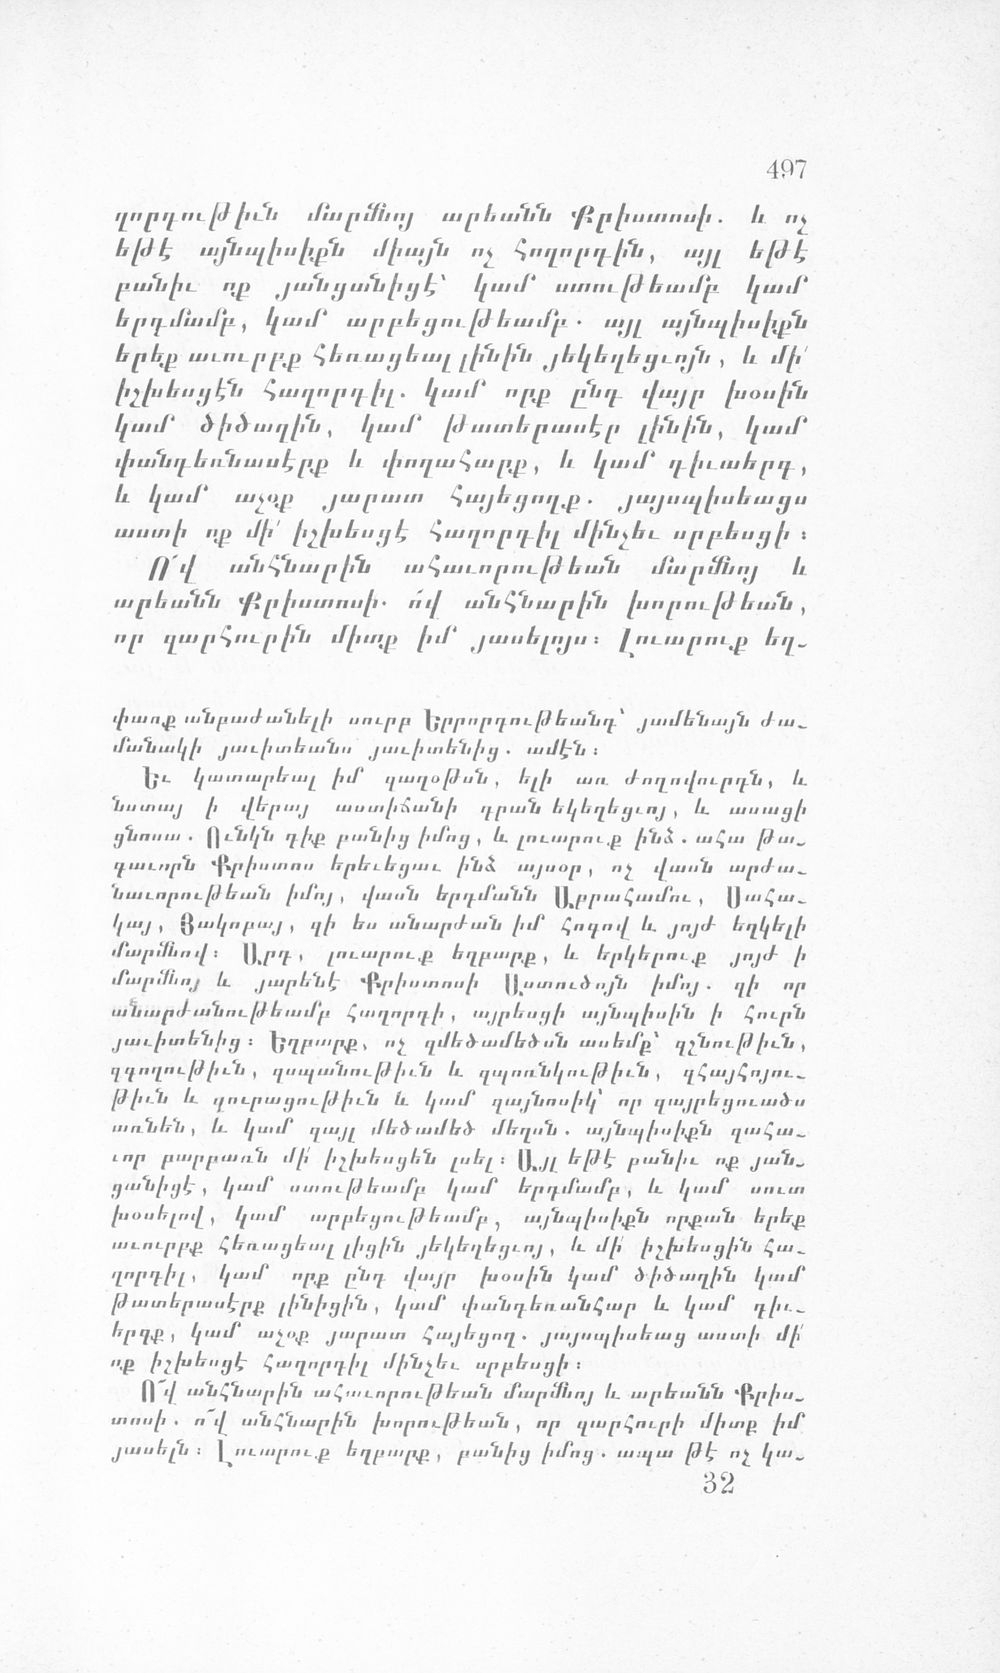 497
ղորդութիւն մարմնոյ արեանն Քրիստոսի. և ոչ
եթէ այնպիսիքն միայն ոչ հողորդին, այլ եթէ
բանիւ ոք յանցանիցէ՝ կամ ստութեամբ կամ
երդմամբ, կամ արբեցութեամբ. այլ այնպիսիքն
երեք աւուրբք հեռացեալ լինին յեկեղեցւոյն, և մի՛
իշխեսցէն հաղորդիլ. կամ որք ընդ վայր խօսին
կամ ծիծաղին, կամ թատերասէր լինին, կամ
փանդեռնասէրք և փողահարք, և կամ դիւաերդ,
և կամ աչօք յարատ հայեցողք. յայսպիսեացս
աստի ոք մի՛ իշխեսցէ հաղորդիլ մինչեւ սրբեսցի:
Ո՜վ անհնարին ահաւորութեան մարմնոյ և
արեանն Քրիստոսի. ո՜վ անհնարին խորութեան,
որ զարհուրին միտք իմ յասելոյս: Լուարուք եղ-
փառք անբաժանելի սուրբ Երրորդութեանդ՝ յամենայն ժա-
մանակի յաւիտեանս յաւիտենից. ամէն:
Եւ կատարեալ իմ զաղօթսն, ելի առ ժողովուրդն, և
նստայ ի վերայ աստիճանի դրան եկեղեցւոյ, և ասացի
ցնոսա. Ունկն դիք բանից իմոց, և լուարուք ինձ. ահա թա-
գաւորն Քրիստոս երեւեցաւ ինձ այսօր, ոչ վասն արժա-
նաւորութեան իմոյ, վասն երդմանն Աբրահամու, Սահա-
կայ, Յակոբայ, զի ես անարժան իմ հոգով և յոյժ եղկելի
մարմնով: Արդ, լուարուք եղբարք, և երկերուք յոյժ ի
մարմնոյ և յարենէ Քրիստոսի Աստուծոյն իմոյ. զի որ
անարժանութեամբ հաղորդի, այրեսցի այնպիսին ի հուրն
յաւիտենից: Եղբարք, ոչ զմեծամեծսն ասեմք՝ զշնութիւն,
զգողութիւն, զսպանութիւն և զպոռնկութիւն, զհայհոյու-
թիւն և զուրացութիւն և կամ զայնոսիկ՝ որ զայրեցուածս
առնեն, և կամ զայլ մեծամեծ մեղսն. այնպիսիքն զահա-
ւոր բարբառն մի՛ իշխեսցեն լսել: Այլ եթէ բանիւ ոք յան-
ցանիցէ, կամ ստութեամբ կամ երդմամբ, և կամ սուտ
խօսելով, կամ արբեցութեամբ, այնպիսիքն որքան երեք
աւուրբք հեռացեալ լիցին յեկեղեցւոյ, և մի՛ իշխեսցին հա-
ղորդիլ, կամ որք ընդ վայր խօսին կամ ծիծաղին կամ
թատերասէրք լինիցին, կամ փանդեռանհար և կամ դիւ-
երգք, կամ աչօք յարատ հայեցող. յայսպիսեաց աստի մի՛
ոք իշխեսցէ հաղորդիլ մինչեւ սրբեսցի:
Ո՜վ անհնարին ահաւորութեան մարմնոյ և արեանն Քրիս-
տոսի. ո՜վ անհնարին խորութեան, որ զարհուրի միտք իմ
յասելն: Լուարուք եղբարք, բանից իմոց. ապա թէ ոչ կա-
32